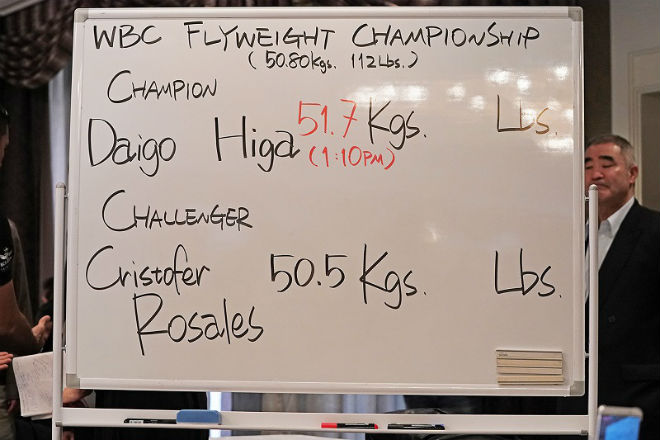 WBC FLYWEIGHT CHAMPIONSHIP
(50.80kgs. 112Lbs.)
CHAMPION
Daigo Higa 51.7 Kgs. Lbs.
(1:10PM)
CHALLENGER
Cristofer 50.5 Kgs. Lbs.
Rosales